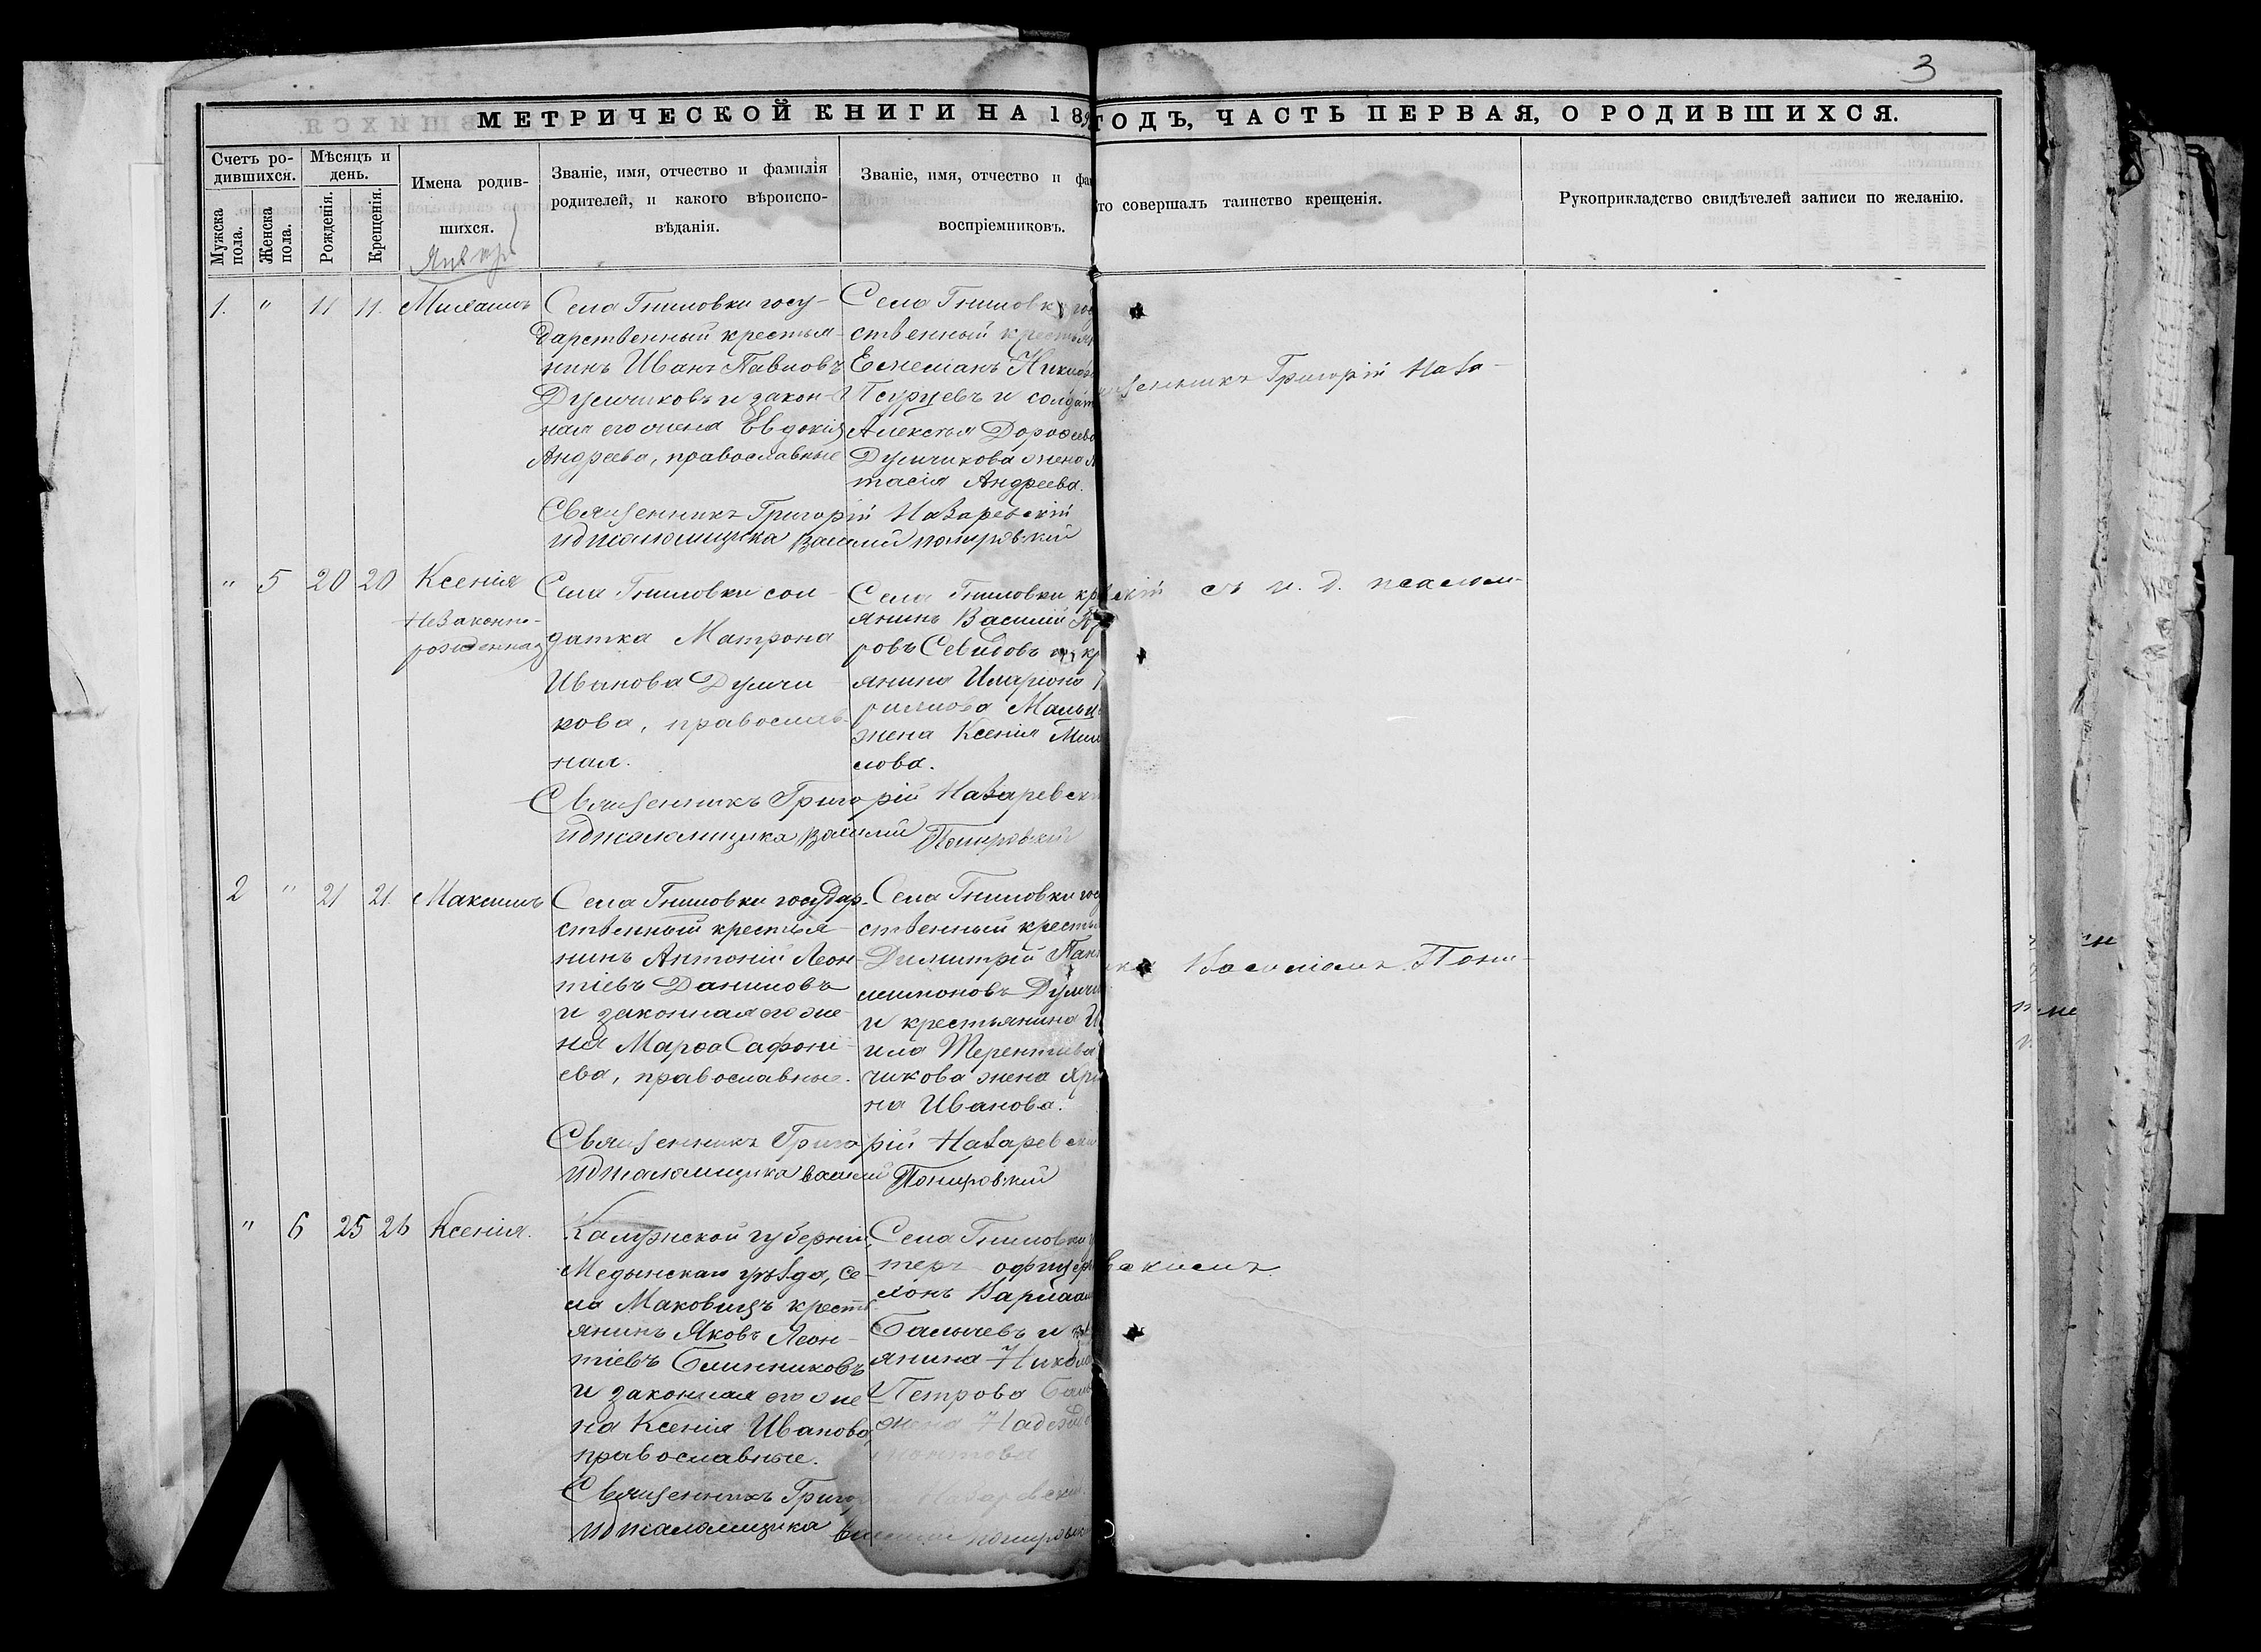 3
МЕТРИЧЕСКОЙ КНИГИ НА 18
ГОДЪ, ЧАСТЬ ПЕРВАЯ, О РОДИВШИХСЯ.
Счетъ ро-
дившихся.
Мужска
пола.
Женска
пола.
Мѣсяцъ и
день.
Рожденія.
Крещенія.
Имена родив-
шихся.
Январь
Званіе, имя, отчество и фамилія
родителей, и какого вѣроиспо-
вѣданія.
Званіе, имя, отчество и фа
воспріемниковъ.
то совершалъ таинство крещенія.
Рукоприкладство свидѣтелей записи по желанію.
1. " 11 11.
Села Гниловки госу-
дарственный крестья-
нинъ Иванъ Павловъ
Думчиковъ и закон-
ная его жена Евдокія
Андреева, православные
Села Гниловки гос
ственный крестьян
Емеліанъ Никола
и солдат
Алексѣя Дорофеева
Думчикова жена А
тасія Андреева.
Священникъ Григорій Назаревскій
И д псаломщика Василий Понировский
" 5 20 20 Ксенія
незаконно-
рожденная
Села Гниловки сол-
датка Матрона
Иванова Думчи-
кова, православ-
ная.
Села Гниловки кр
янинъ Василій
ровъ и кр
янина Иларіона
жена Ксенія
лова.
Священникъ Григорій Назаревск
И д псаломщика Василий Понировский
2 " 21 21. Максимъ
Села Гниловки государ-
ственный крестья-
нинъ Антоній Леон-
тіевъ Даниловъ
и законная его же-
на Марѳа Сафоні-
ева, православные.
Села Гниловки гос
ственный крестья
Димитрій Пан
лимоновъ Думчи
и крестьянина И
ила Терентіева
чикова жена Ири
на Иванова.
Священникъ Григорій Назаревски
И д псаломщика Василий Понировский
" 6 25 26 Ксенія.
Калужской губерніи,
Медынскаго уѣзда, се-
ла Маковицъ кресть
янинъ Яковъ Леон-
тіевъ Блинниковъ
и законная его же
на Ксенія Иванова,
православные.
Села Гниловки у
теръ-офицеръ
лонъ Варлаам
Балычевъ и
янина Никола
Петрова Бал
жена Надежда
Священникъ Григорій Назаревскій
И д псаломщика Василий Понировск
щенникъ Григорій Наза-
скій съ и. д. псалом-
ика Василіемъ Пони-
вскимъ.